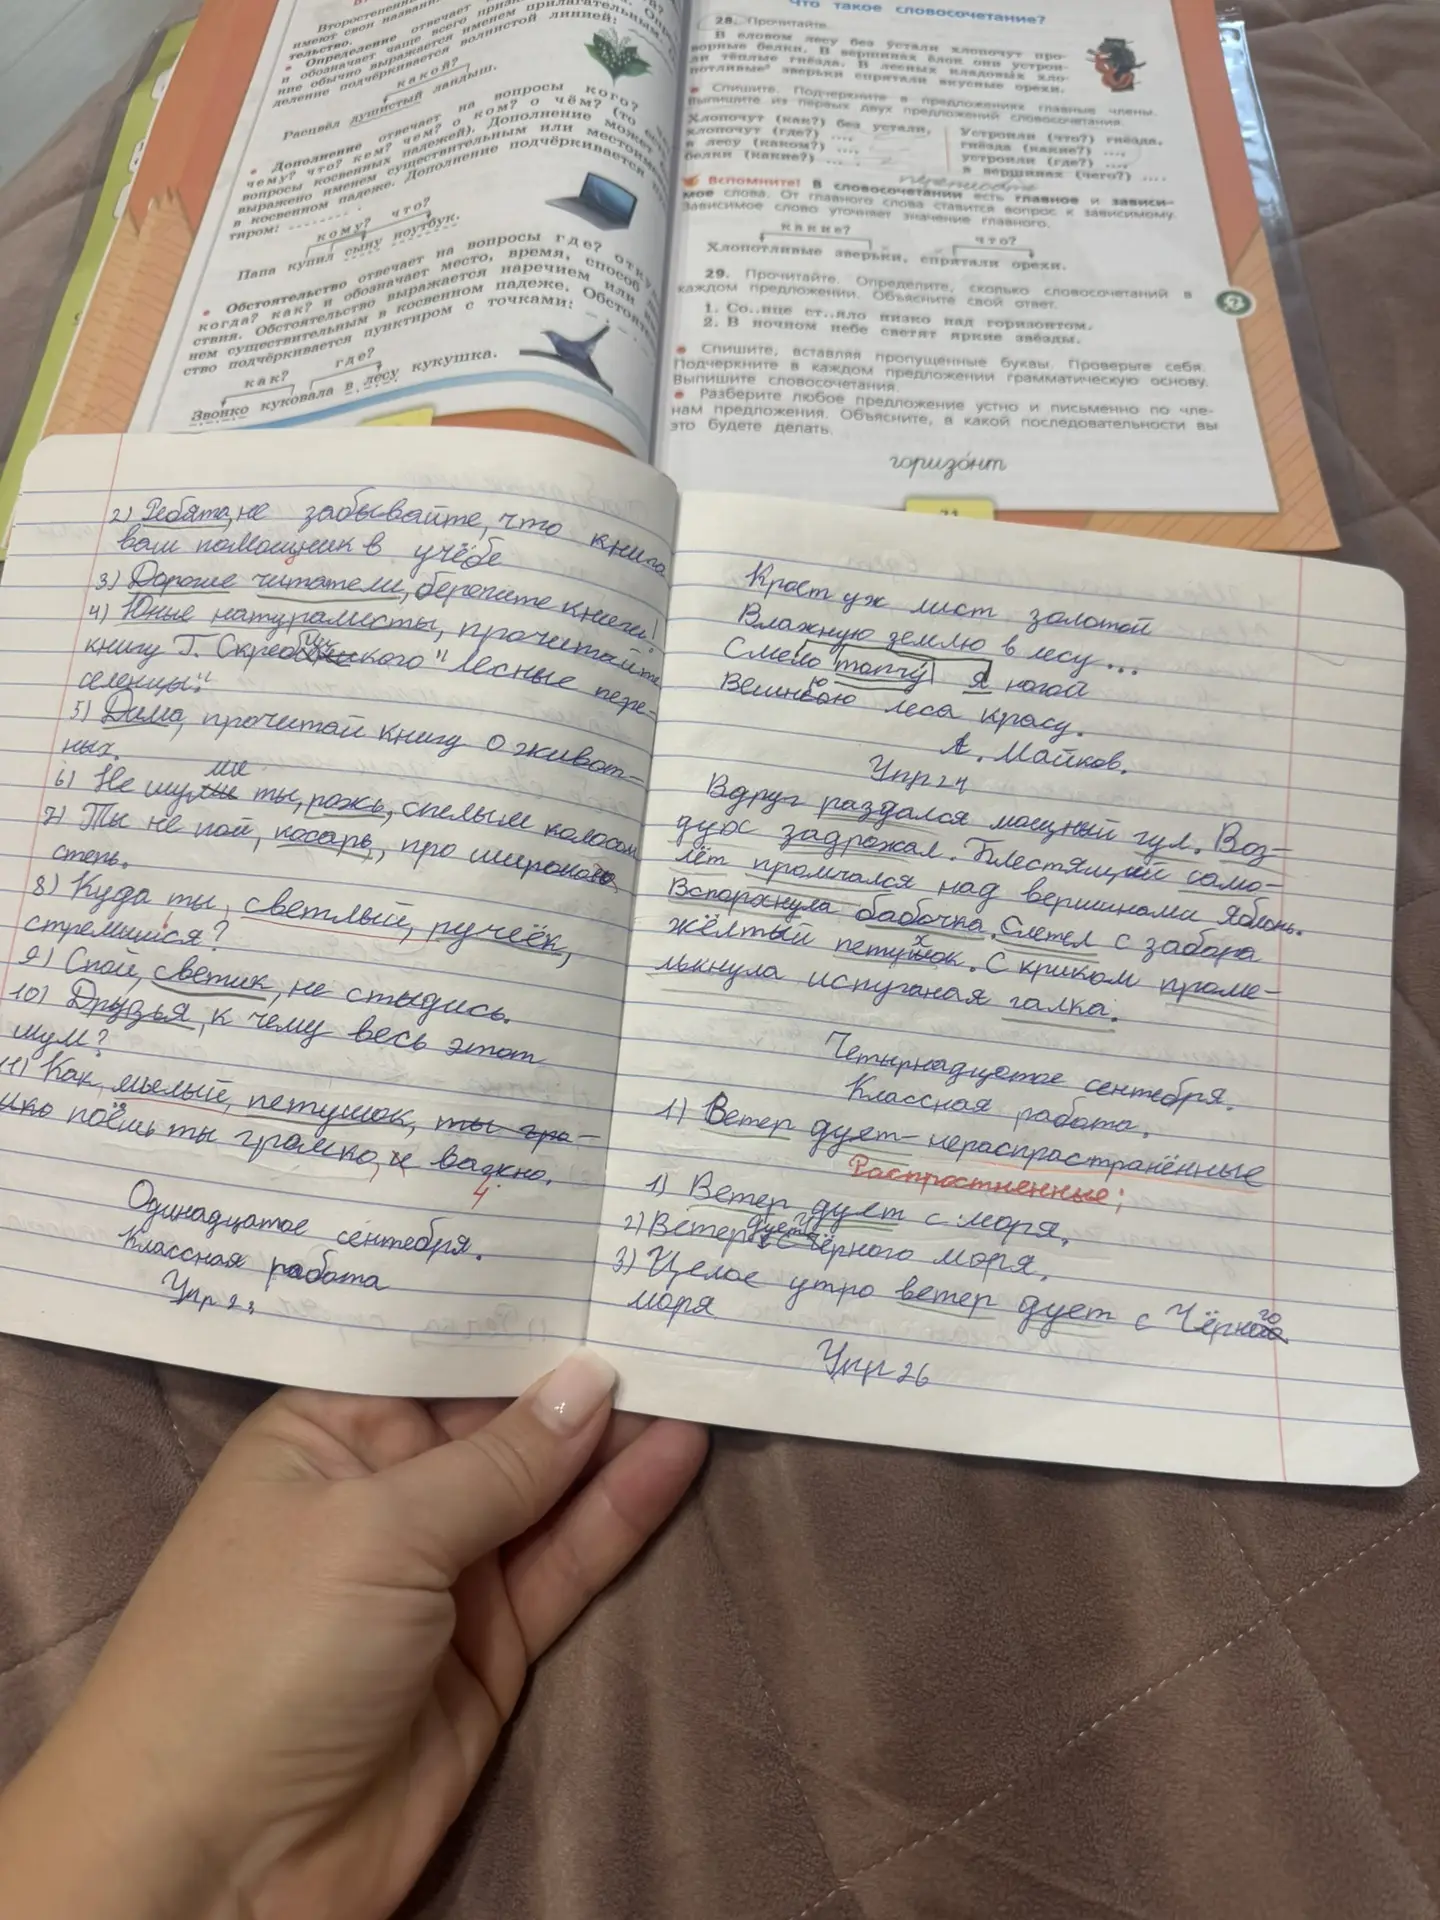 имеют свои названия
тельство.
• Определение отвечает
и обозначает чаще всего
ние обычно выражается именем прилагательным.
деление подчёркивается волнистой линией:
какой?
Расцвёл душистый ландыш.
• Дополнение отвечает на вопросы кого?
чему? что? кем? чем? о ком? о чём? (то
вопросы косвенных падежей). Дополнение может
выражено именем существительным или
в косвенном падеже. Дополнение подчёркивается
тиром:
кому? что?
Папа купил сыну ноутбук.
• Обстоятельство отвечает на вопросы где?
когда? как? и обозначает место, время, способ
ствия. Обстоятельство выражается наречием или
нем существительным в косвенном падеже.
ство подчёркивается пунктиром с точками:
как? где?
Звонко куковала в лесу кукушка.
Что такое словосочетание?
28. Прочитайте.
В еловом лесу без устали хлопочут про-
ворные белки. В вершинах ёлок они устрои-
ли тёплые гнёзда. В лесных кладовых хло-
потливые зверьки спрятали вкусные орехи.
• Спишите. Подчеркните в предложениях главные члены.
Выпишите из первых двух предложений словосочетания.
Хлопочут (как?) без устали,
хлопочут (где?) ...,
в лесу (каком?) ...,
белки (какие?) ...
Устроили (что?) гнёзда,
гнёзда (какие?) ...,
устроили (где?) ...,
в вершинах (чего?) ....
Вспомните! В словосочетании есть главное и зависи-
мое слова. От главного слова ставится вопрос к зависимому.
Зависимое слово уточняет значение главного.
какие? что?
Хлопотливые зверьки, спрятали орехи.
29. Прочитайте. Определите, сколько словосочетаний в
каждом предложении. Объясните свой ответ.
1. Со..нце ст..яло низко над горизонтом.
2. В ночном небе светят яркие звёзды.
• Спишите, вставляя пропущенные буквы. Проверьте себя.
Подчеркните в каждом предложении грамматическую основу.
Выпишите словосочетания.
• Разберите любое предложение устно и письменно по чле-
нам предложения. Объясните, в какой последовательности вы
это будете делать.
горизонт
21
2) Ребята, не забывайте, что книга
вам помощник в учёбе
3) Дорогие читатели, берегите книги!
4) Юные натуралисты, прочитайте
книгу Г. Скребицкого "Лесные пере-
селенцы".
5) Дима, прочитай книгу о живот-
ных.
6) Не шуми ты, рожь, спелым колосом
7) Ты не пой, косарь, про широкую
степь.
8) Куда ты, светлый, ручеёк,
стремишься?
9) Спой, светик, не стыдись.
10) Друзья, к чему весь этот
шум?
11) Как, милый, петушок, ты гро-
мко поёшь ты громко, и важно.
4
Одинадцатое сентября.
Классная работа
Упр 23
Кроет уж лист золотой
Влажную землю в лесу...
Смело топчу я ногой
Вешнюю леса красу.
А. Майков.
Упр 24
Вдруг раздался мощный гул. Воз-
дух задрожал. Блестящий само-
лёт промчался над вершинами яблонь.
Вспорхнула бабочка. Слетел с забора
жёлтый петушок. С криком проме-
лькнула испуганая галка.
Четырнадцатое сентября.
Классная работа.
1) Ветер дует - нераспрастранённые
Распростненные:
1) Ветер дует с моря.
2) Ветер дует с Чёрного моря.
3) Целое утро ветер дует с Чёрного
моря
Упр 26